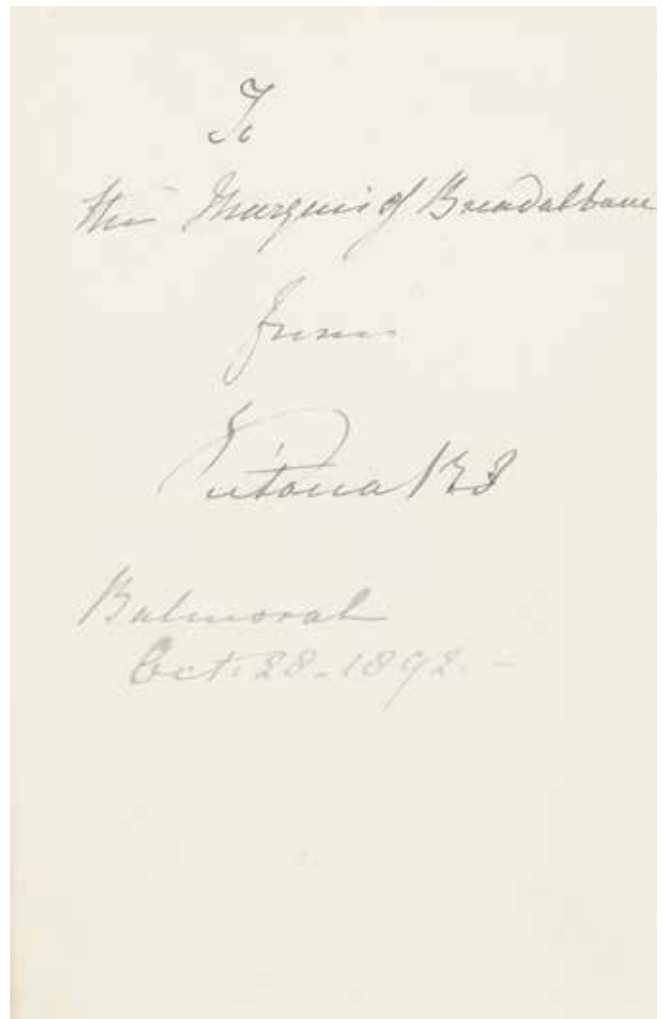 To
the Marquis of Breadalbane
from
Victoria R I
Balmoral
Oct. 28. 1892. –